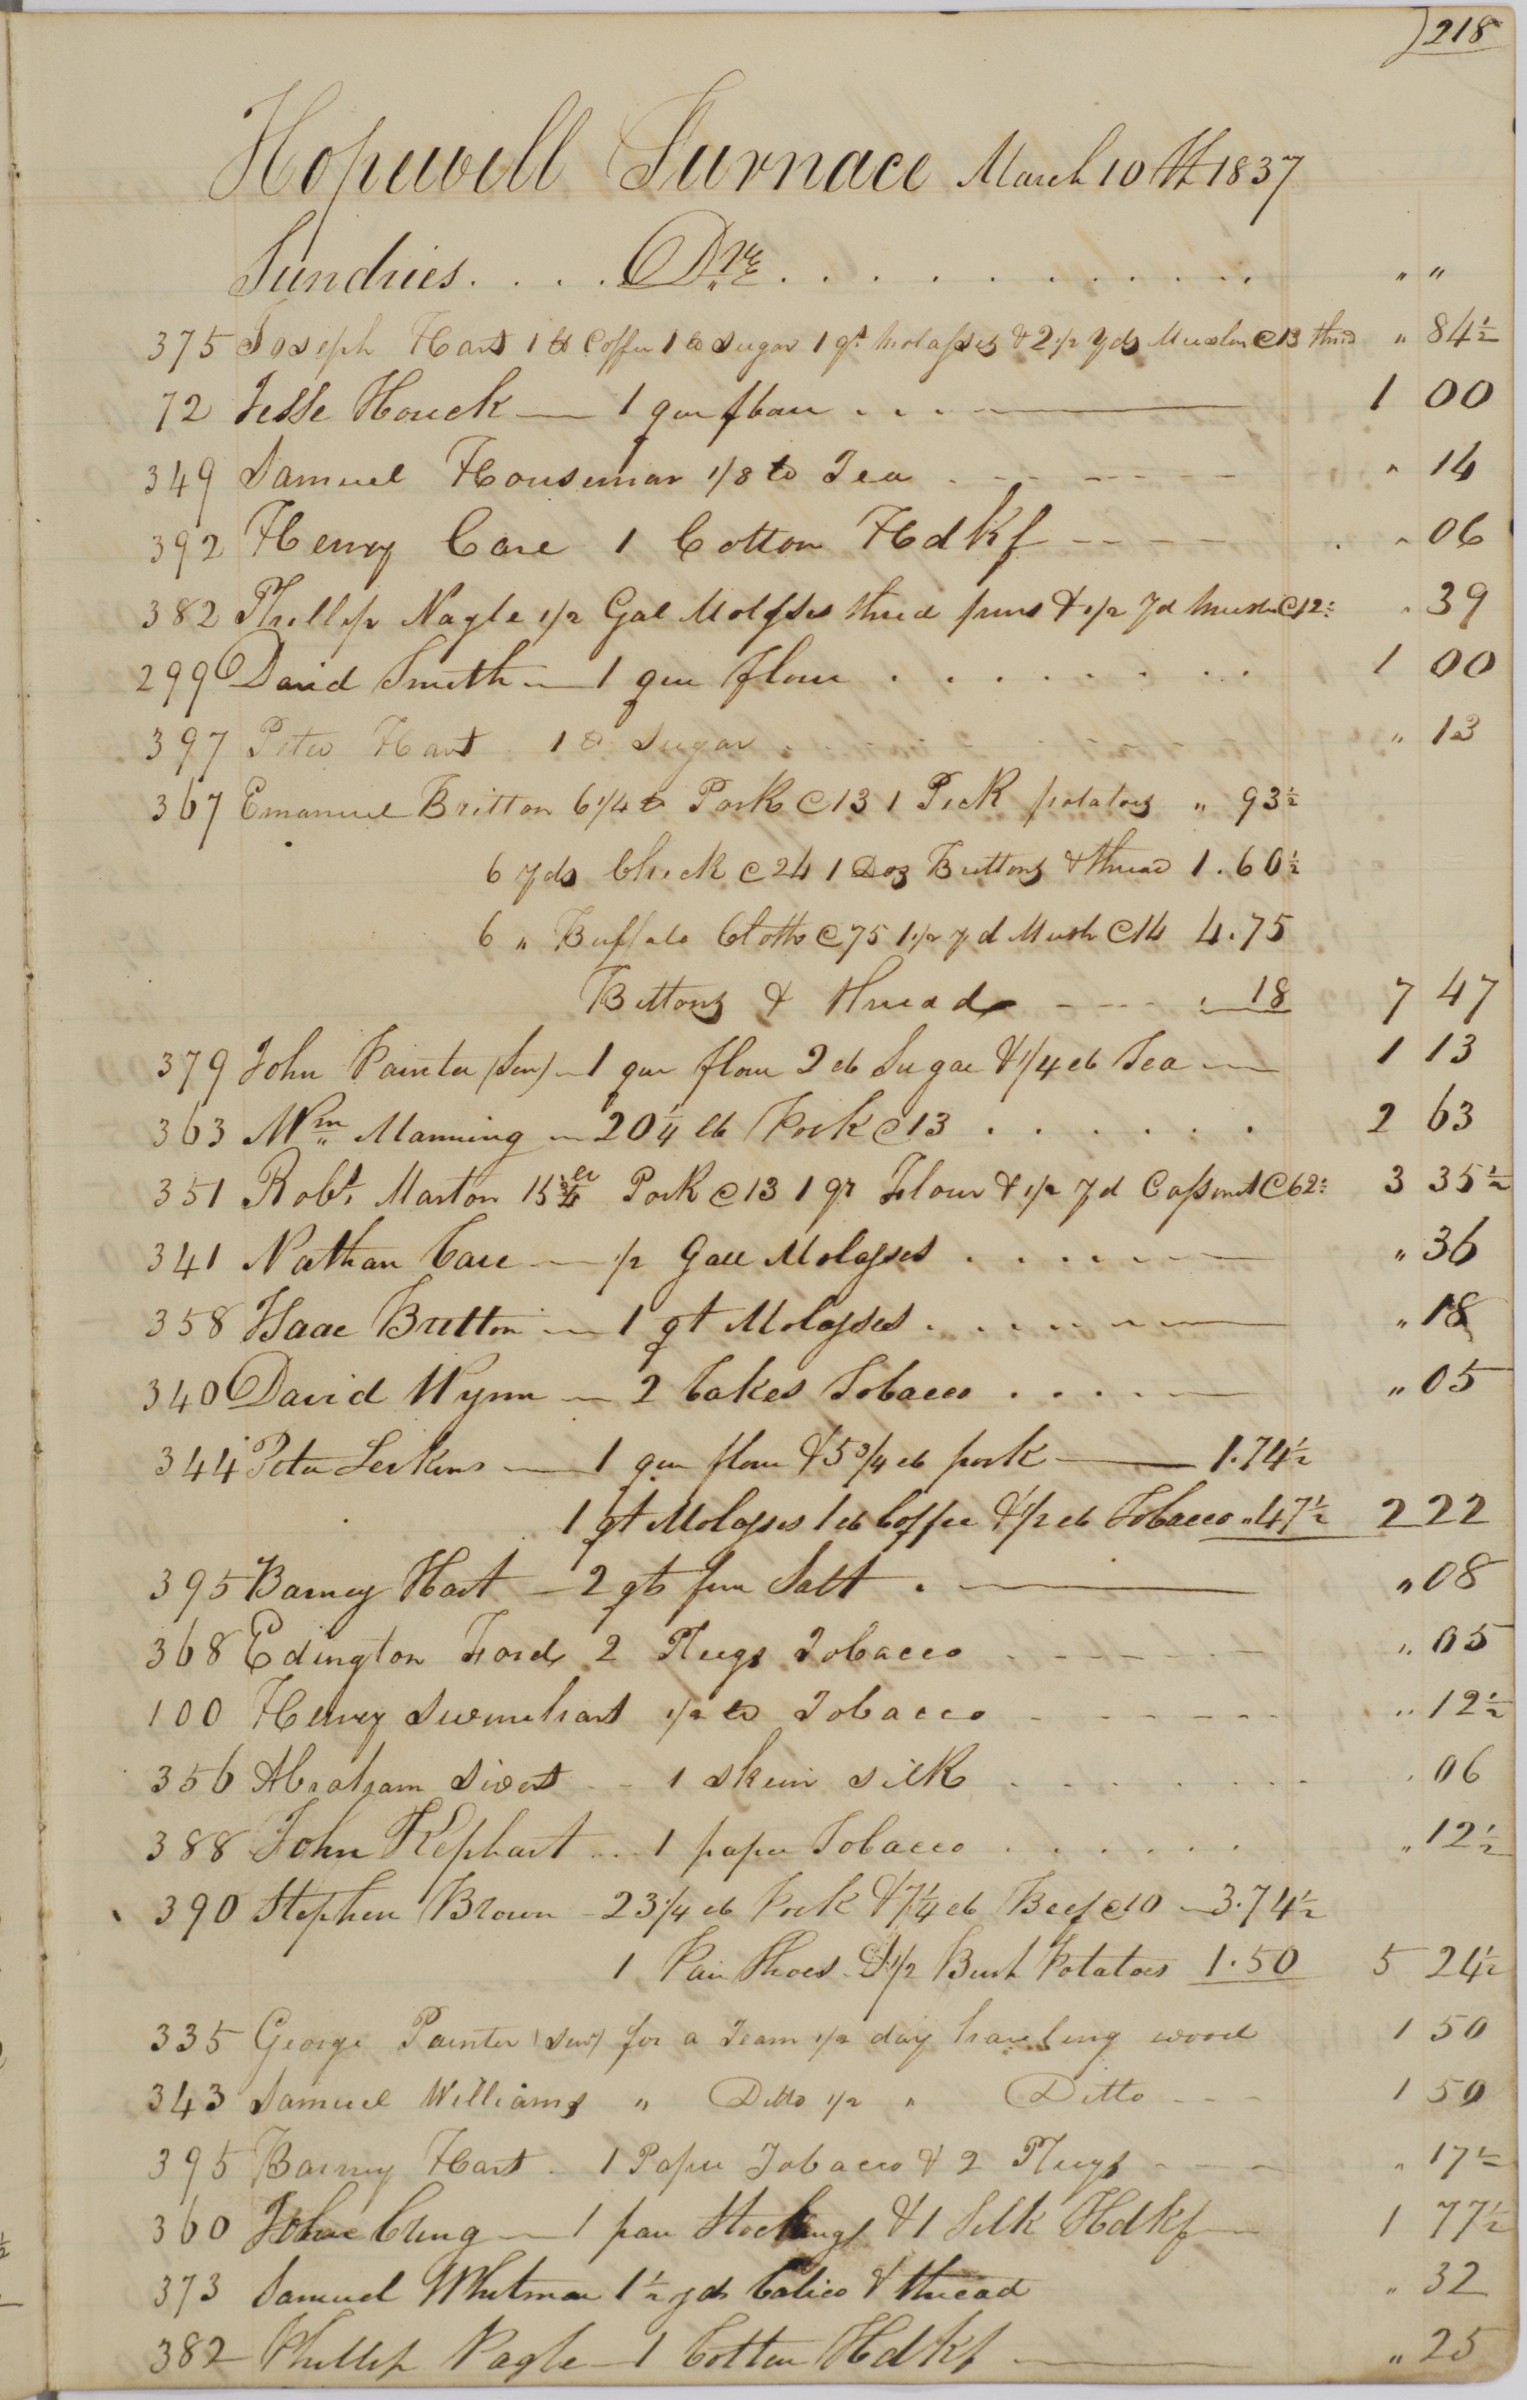 218
Hopewell Furnace March 10th 1837
Sundries. . . . Drs. . . . . . . . . . . " "
375 Joseph Hart 1 lb Coffee 1 lb Sugar 1 qt Molasses & 2 1/2 Yds Muslin @ 13 thrd " 84 1/2
72 Jesse Houck — 1 qur flour . . . — 1 00
349 Samuel Houseman 1/8 lb Tea . - - - - - " 14
392 Henry Care 1 Cotton Hdkf - - - - " 06
382 Phillip Nagle 1/2 Gal Molasses thred pins & 1/2 Yd Muslin @ 12 1/2 " 39
299 David Smith — 1 qur flour . . . . . . . . 1 00
397 Peter Hart 1 lb Sugar . . . . . " 13
367 Emanuel Britton 6 1/4 lb Pork @ 13 1 Peck potatoes " 93 1/2
6 yds Check @ 24 1 Doz Buttons & thread 1.60 1/2
6 " Buffalo Cloth @ 75 1 1/2 yd Musln @ 14 4.75
Buttons & thread - - - - " 18 7 47
379 John Painter (Sen) — 1 qur flour 2 lb Sugar & 1/4 lb Tea — 1 13
363 Wm Manning — 20 1/4 lb Pork @ 13 . . . . . . 2 63
351 Robt. Marton 15 3/4 lb Pork @ 13 1 qr Flour & 1/2 yd Cassinet @ 62 1/2 3 35 1/2
341 Nathan Care — 1/2 Gall Molasses . . . . — " 36
358 Isaac Britton — 1 qt Molasses . . . . — " 18
340 David Wynn — 2 Cakes Tobacco . . . . — " 05
344 Peter Lerkins — 1 qur flour & 5 3/4 lb pork — 1.74 1/2
1 qt Molasses 1 lb Coffee & 1/2 lb Tobacco " 47 1/2 2 22
395 Barney Hart — 2 qts fine Salt . — " 08
368 Edington Ford 2 Plugs Tobacco - - - - - " 05
100 Henry Swinehart 1/2 lb Tobacco - - - - - " 12 1/2
356 Abraham Sivert - - 1 skein silk . . . . . . " 06
388 John Kephart . . . 1 paper Tobacco . . . . . . " 12 1/2
390 Stephen Brown - 23 1/4 lb Pork & 7 1/4 lb Beef @ 10 — 3.74 1/2
1 Pair Shoes & 1/2 Bush Potatoes 1.50 5 24 1/2
335 George Painter (Senr) for a Team 1/2 day hauling wood 1 50
343 Samuel Williams " Ditto 1/2 " Ditto - - - 1 50
395 Barney Hart - 1 Paper Tobacco & 2 Plugs - - - " 17 1/2
360 John Cring — 1 pair Stockings & 1 Silk Hdkf — 1 77 1/2
373 Samuel Whitman 1 1/2 yds Calico & thread " 32
382 Phillip Nagle — 1 Cotton Hdkf — " 25